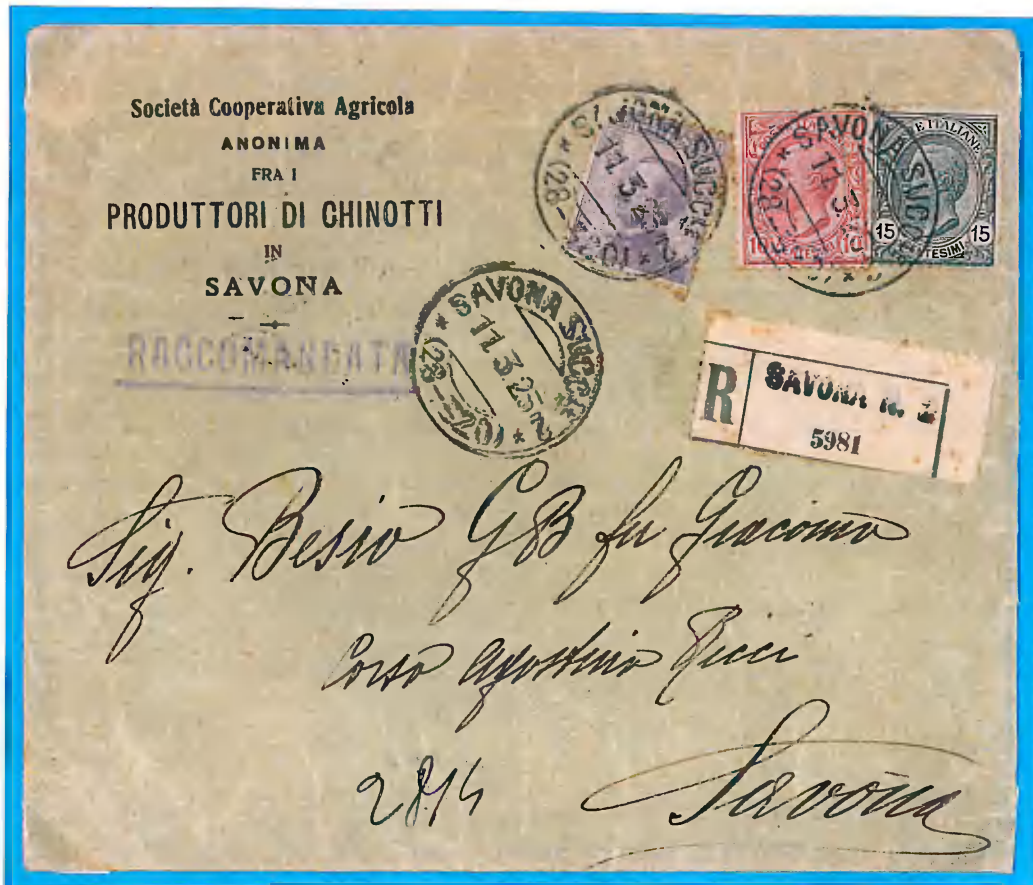 Società Cooperativa Agricola
ANONIMA
FRA I
PRODUTTORI DI CHINOTTI
IN
SAVONA
RACCOMANDATA
SAVONA SUCC. 2 * (28-
11.3.25
SAVONA SUCC.
11.3.
E ITALIANE
10 10
15 15
TESIMI
SAVONA SUCC. 2
11.3.25
R
SAVONA N. 2
5981
Sig. Besio GB fu Giacomo
Corso Agostino Ricci
28/4
Savona